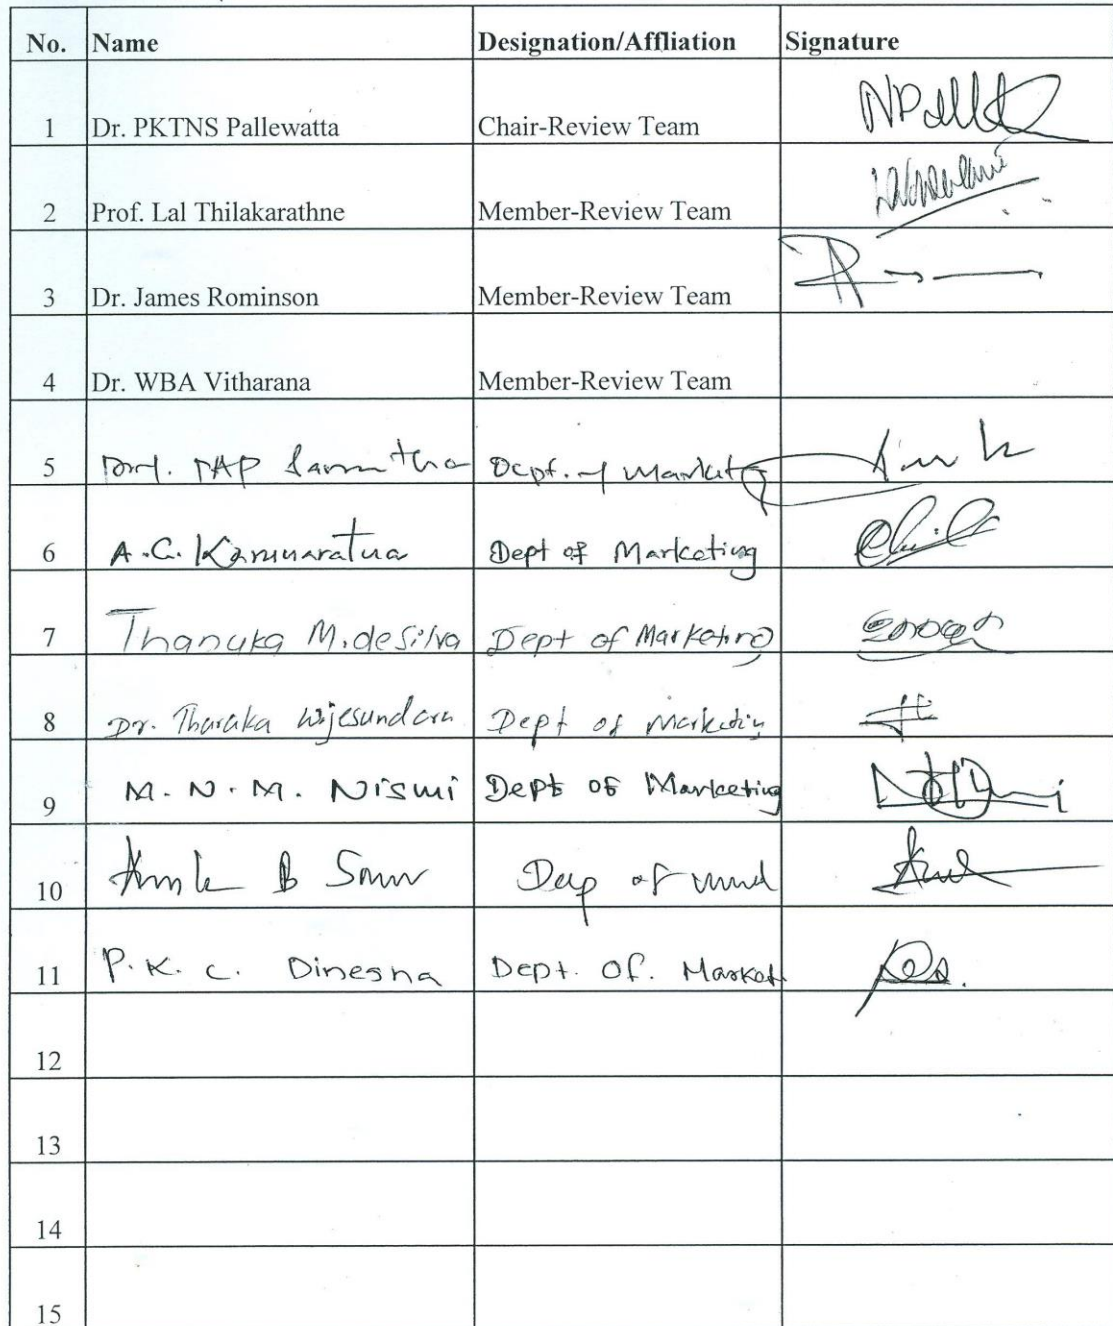 No. Name Designation/Affliation Signature
1 Dr. PKTNS Pallewatta Chair-Review Team
2 Prof. Lal Thilakarathne Member-Review Team
3 Dr. James Rominson Member-Review Team
4 Dr. WBA Vitharana Member-Review Team
5 Dept. of
6 A.C. Karunaratna Dept of Marketing
7 Thanuka M. de Silva Dept of Marketing
8 Dr. Tharaka Wijesundara Dept of Marketing
9 M. N. M. Nismi Dept of Marketing
10 of
11 P. K. C. Dinesha Dept. Of.
12
13
14
15